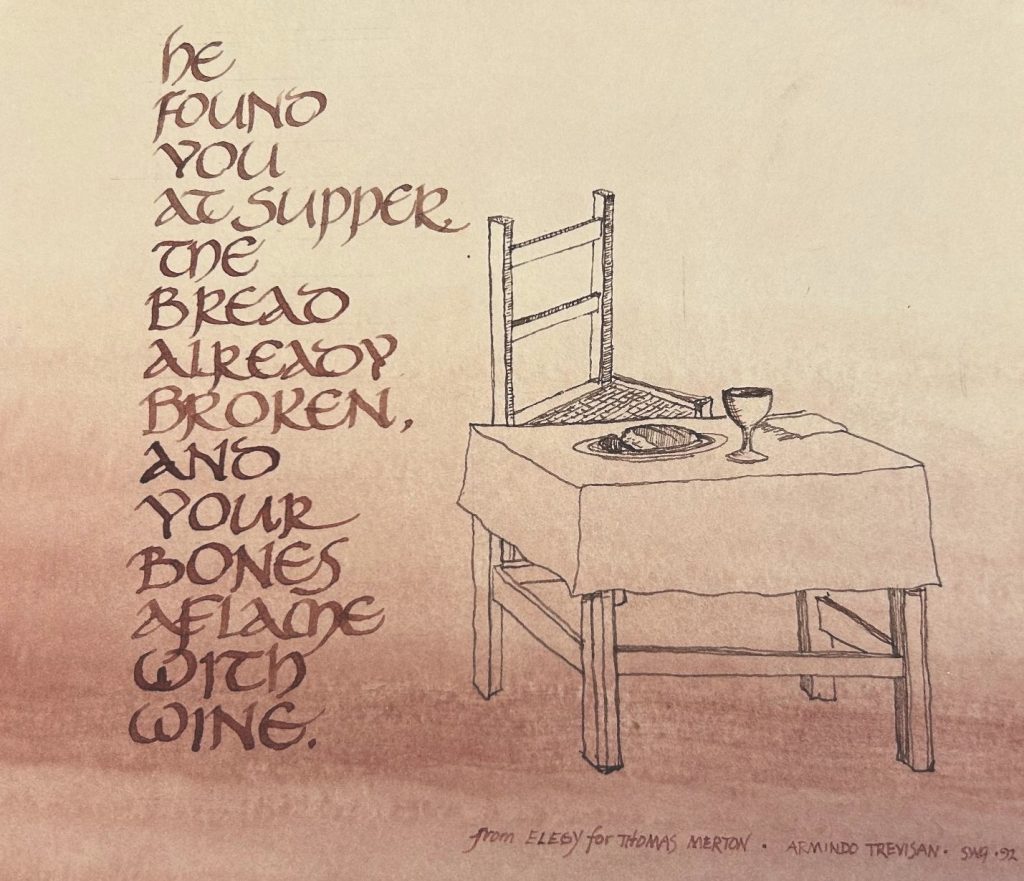 he
found
you
at supper.
the
bread
already
broken,
and
your
bones
aflame
with
wine.
from ELEGY for THOMAS MERTON · ARMINDO TREVISAN · SWG · 92